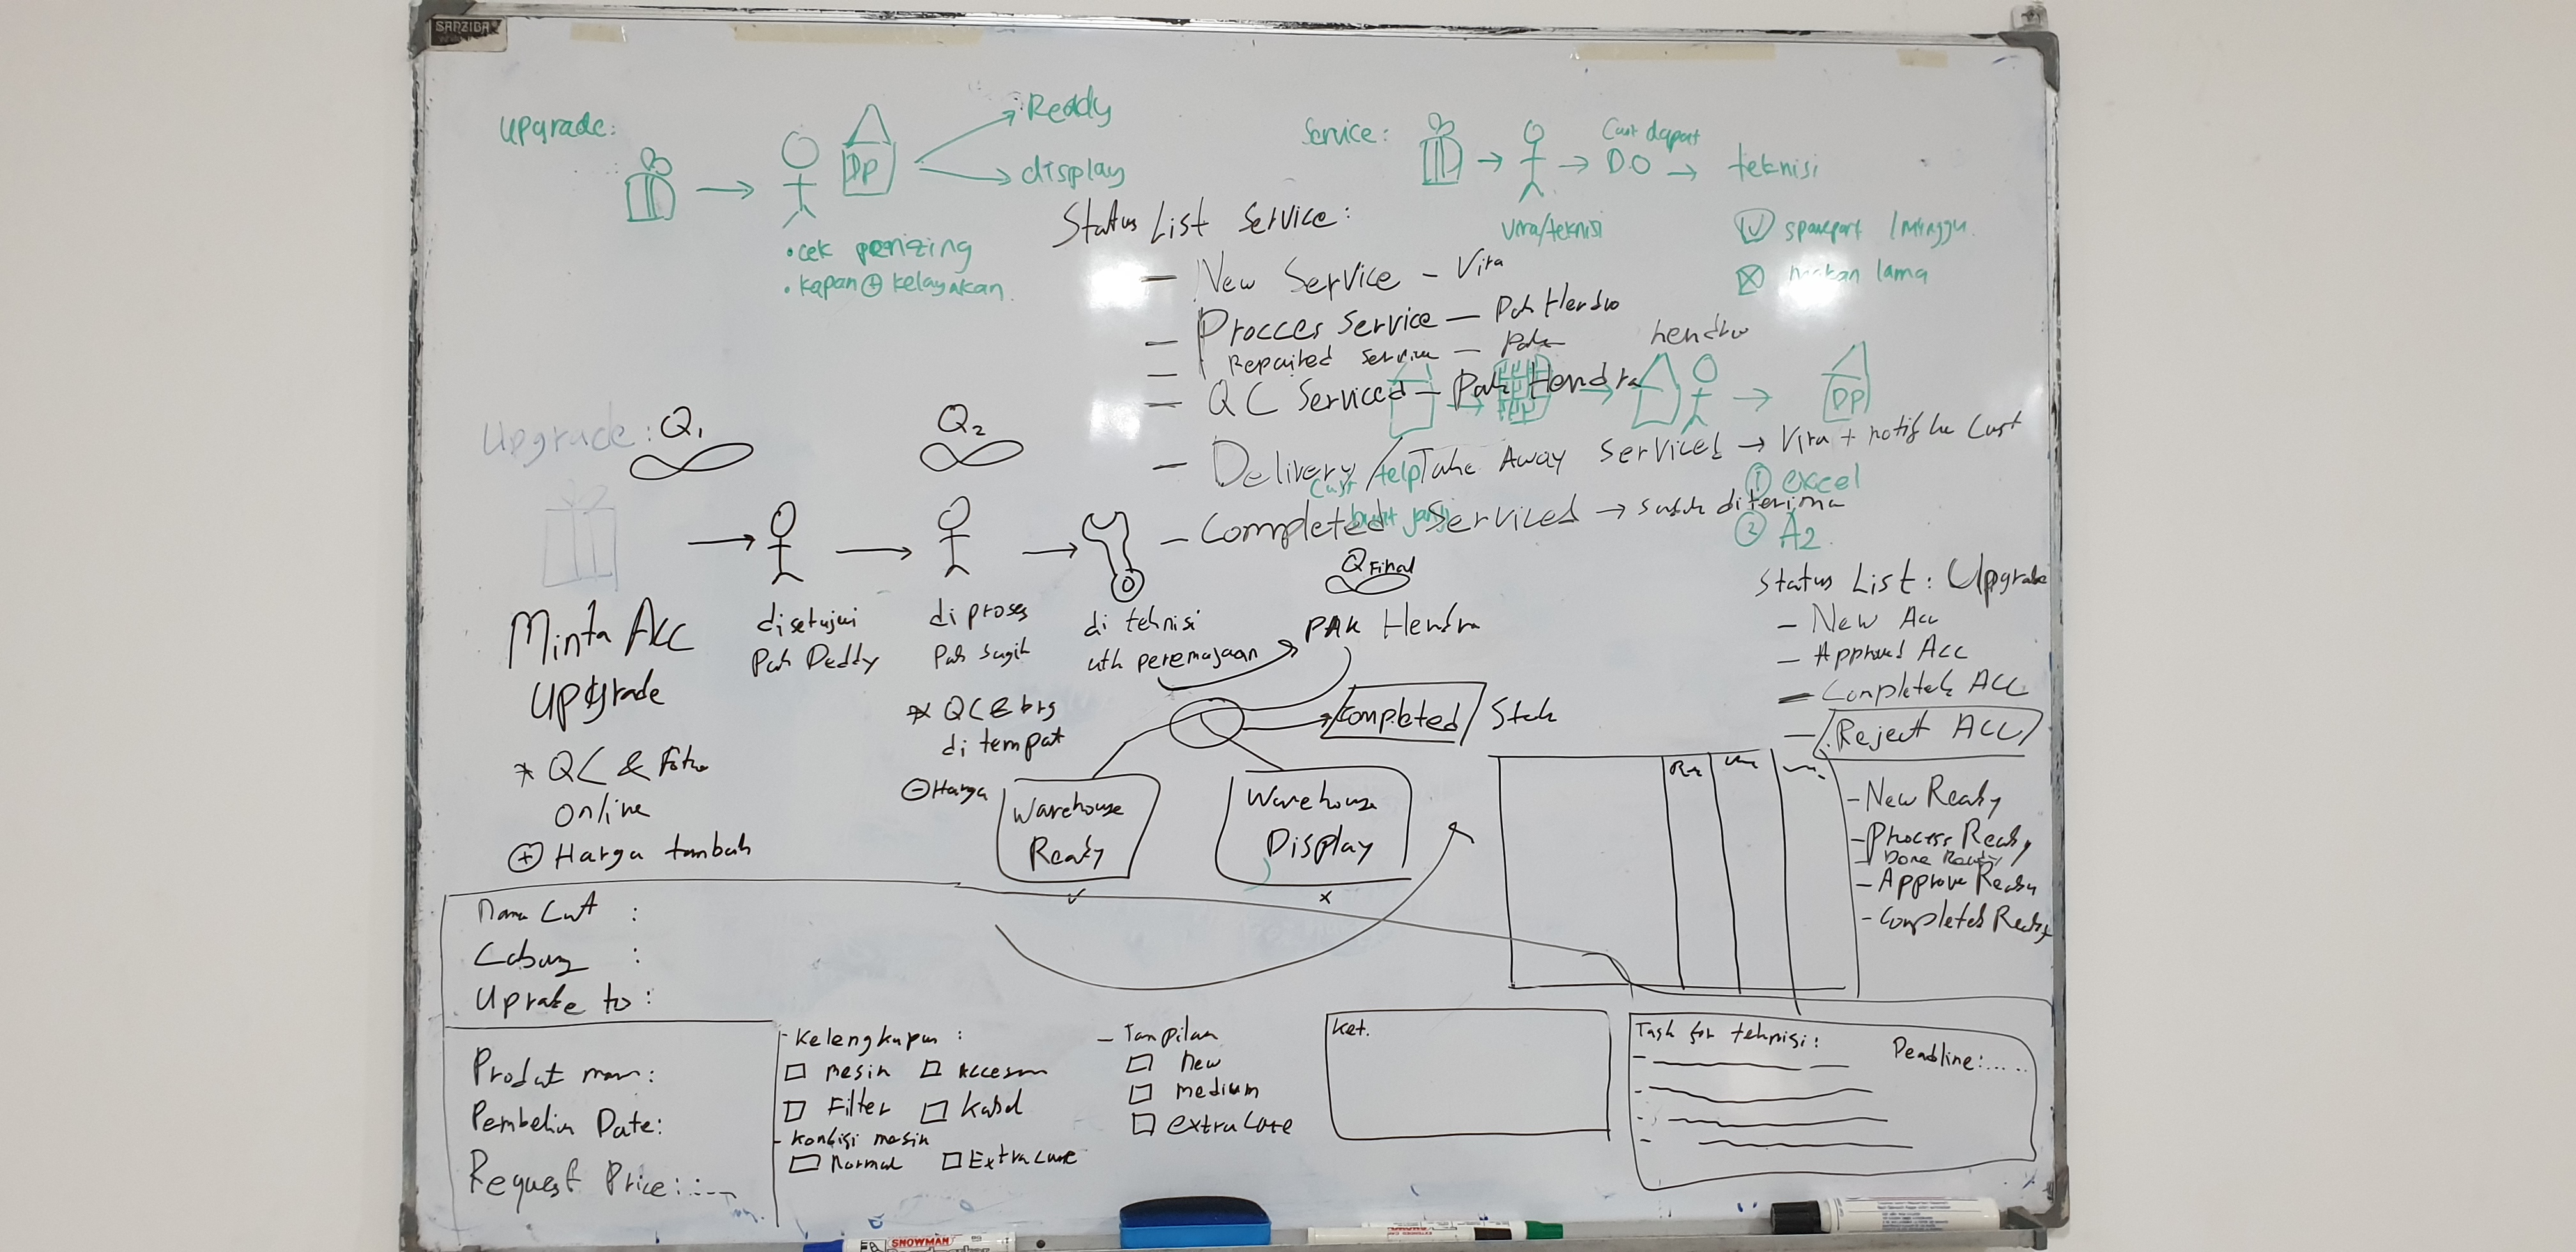 SANZIBA
Upgrade:
DP
Ready
display
• cek perizing
• kapan + kelayakan
Service:
Cust dapat
D.O
teknisi
Vira/teknisi
sparepart 1 minggu
makan lama
Status List Service:
- New Service - Vira
- Procces Service - Pak Hendro
- Repaired Service - Pak
- QC Serviced - Pak Hendra
hendro
DP
- Delivery / Take Away Serviced → Vira + notif ke Cust
Cust telp
① excel
- Completed Serviced → sudah diterima
buat janji
② A2
Upgrade:
Q1
Q2
Minta Acc
Upgrade
* QC & Foto
Online
+ Harga tambah
disetujui
Pak Deddy
di proses
Pak Sugih
* QC brg
di tempat
- Harga
di teknisi
utk peremajaan
Q Final
PAK Hendra
Completed
Warehouse
Ready
Warehouse
Display
Status List: Upgrade
- New Acc
- Approved Acc
- Completed ACC
- Reject ACC
- New Ready
- Process Ready
- Done Ready
- Approve Ready
- Completed Ready
Nama Cust :
Cabang :
Uprade to :
Produt nam :
Pembelian Date:
Request Price:
- Kelengkapan :
Mesin Accesori
Filter Kabel
- Kondisi mesin
Normal Extra Care
- Tampilan
New
Medium
Extra Care
Ket.
Task for teknisi:
Deadline:.....
SNOWMAN